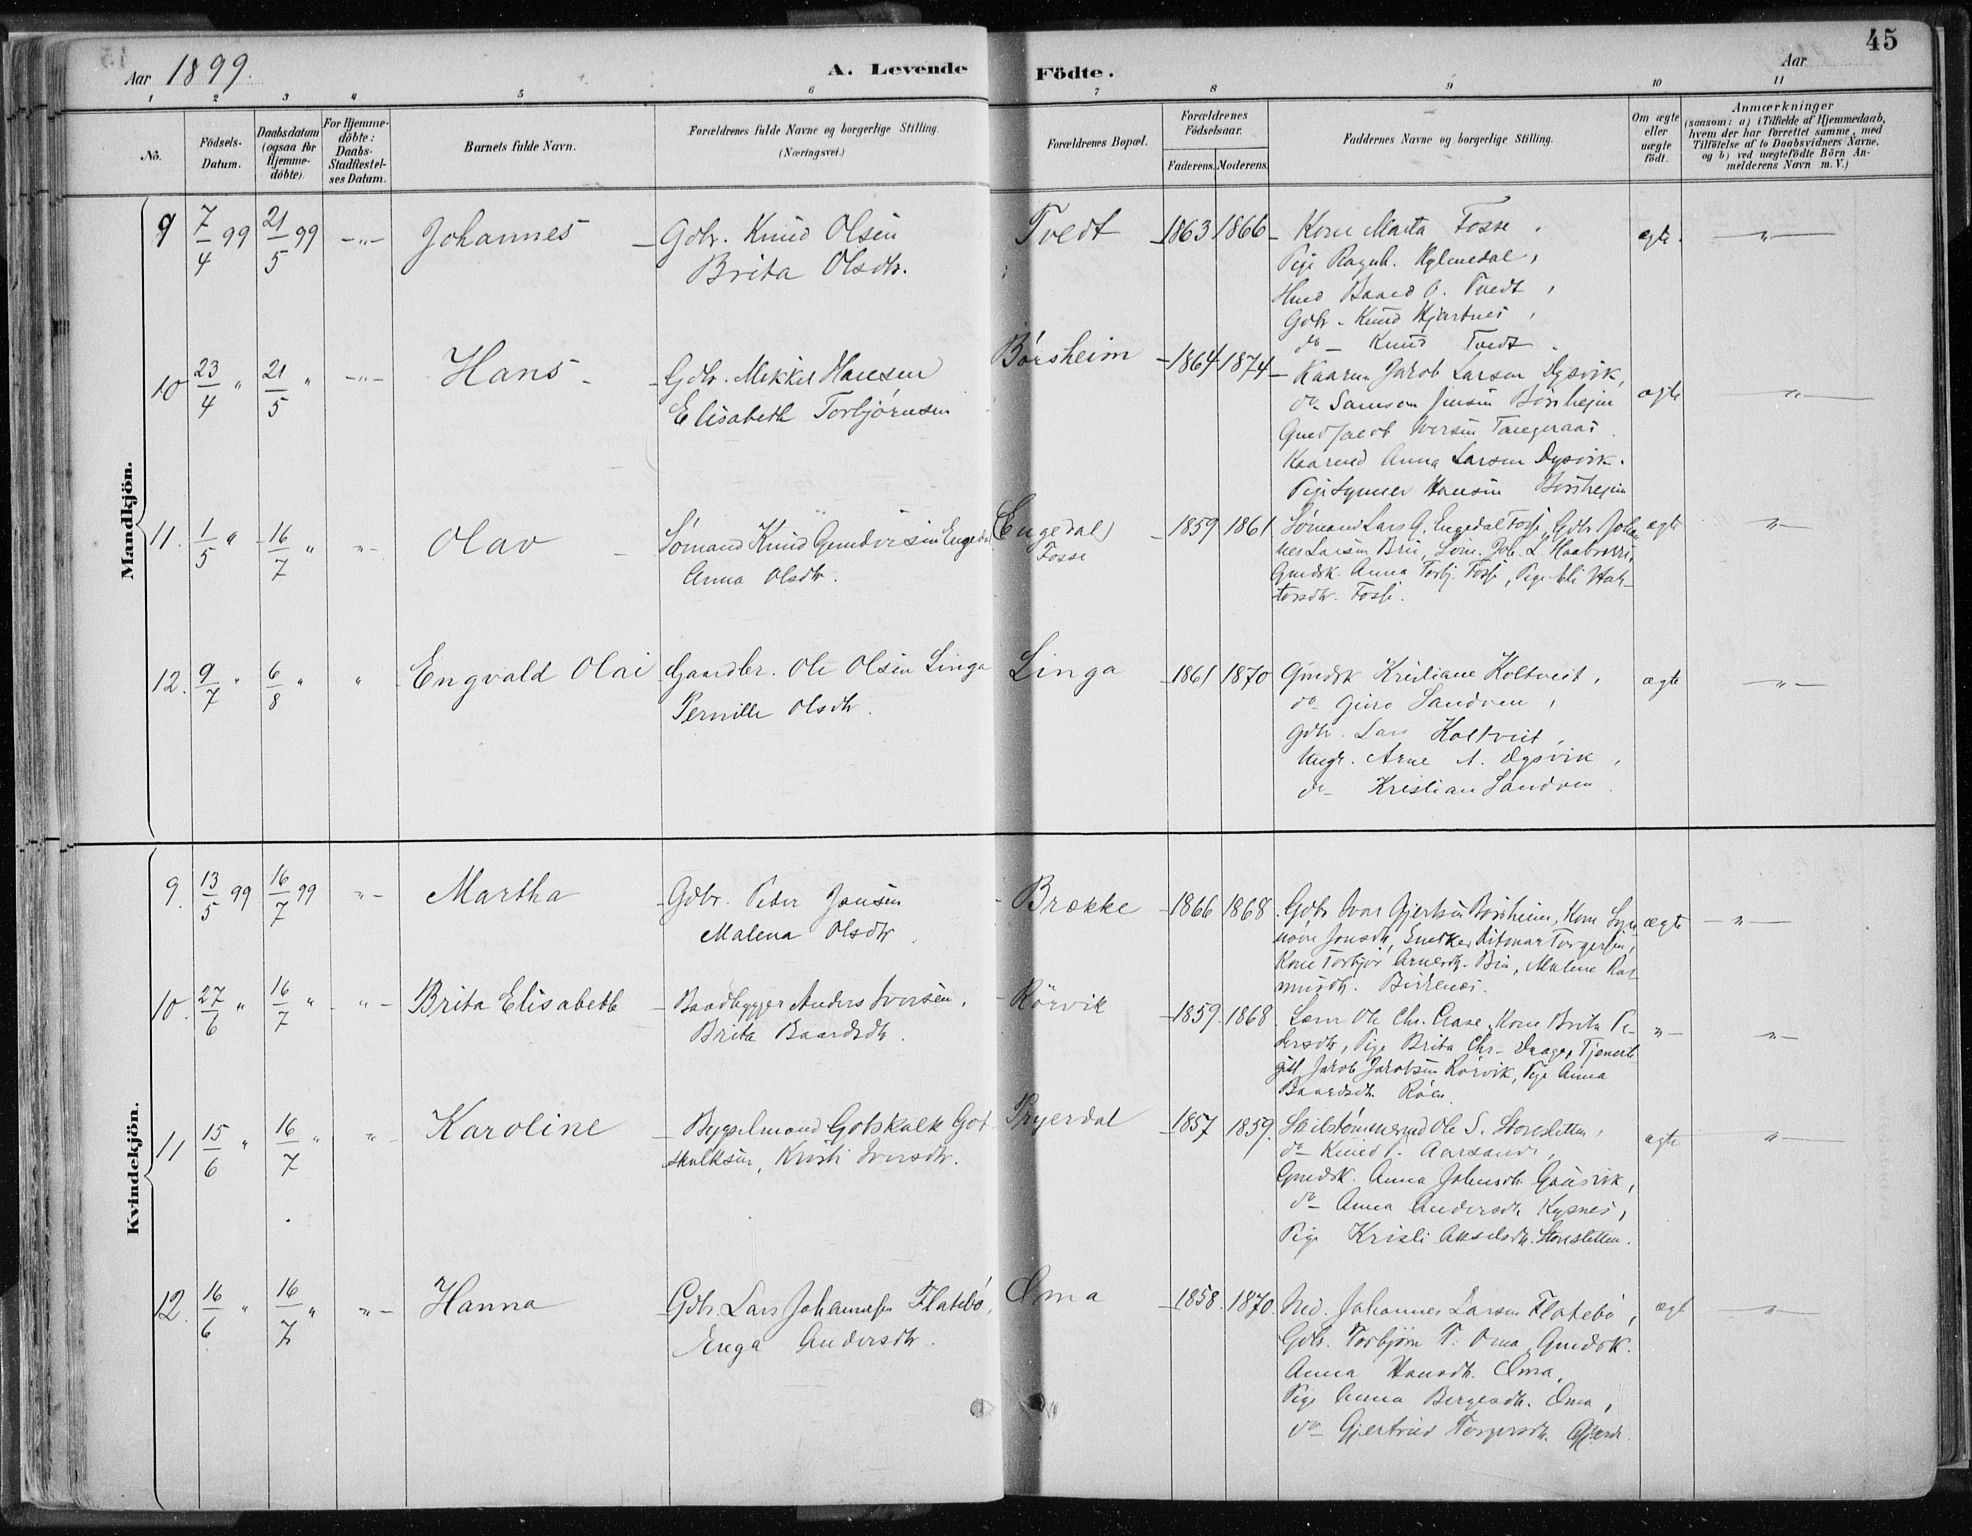 45
Aar 1899. A. Levende Födte. Aar
1 2 3 4 5 6 7 8 9 10 11
No.
Födsels-
Datum.
Daabsdatum
(ogsaa for
Hjemme-
döbte).
For Hjemme-
döbte:
Daabs-
Stadfæstel-
ses Datum.
Barnets fulde Navn.
Forældrenes fulde Navne og borgerlige Stilling.
(Næringsvei.)
Forældrenes Bopæl.
Forældrenes
Födselsaar.
Faderens. Moderens.
Faddernes Navne og borgerlige Stilling.
Om ægte
eller
uægte
födt.
Anmærkninger
(saasom: a) i Tilfælde af Hjemmedaab,
hvem der har forrettet samme, med
Tilföielse af to Daabsvidners Navne,
og b) ved uægtefödte Börn An-
melderens Navn m. V.)
Mandkjön.
9 7/4 99 21/5 99 -"- Johannes Gdbr. Knud Olsen
Brita Olsdtr.
Tvedt 1863 1866 Kone Marta Fosse,
Pige Ragnh.
Baard O. Tvedt,
Gdbr. Knud
do - Knud Tvedt.
ægte. -"-
10 23/4 " 21/5 " -"- Hans Gdbr. Mikkel Hansen
Elisabeth Torbjørnsen
Børsheim 1864 1874 Jacob Larsen Dysvik,
do Samson Jensen Børsheim
Jacob Iversen
Anna Larsen Dysvik.
Pige Hansen Børsheim
ægte -"-
11. 1/5 " 16/7 " "- Olav Sömand Knud Engedal
Anna Olsdtr.
(Engedal)
Fosse
1859 1861 Sömand Lars G. Engedal Fosse, Gdbr. Johan-
nes Larsen Joh. L.
Gmdsk. Anna Torbj. Fosse, Pige
Fosse.
ægte "-
12. 9/7 " 6/8 " " Engvald Olai Gaardbr. Ole Olsen Linga
Pernille Olsdtr.
Linga 1861 1870 Gmdsk Kristiane Holtveit,
do Guro Sandven,
Gdbr. Lars Holtveit,
Ungk. Arne A. Dysvik,
do Kristian Sandven.
ægte -"-
Kvindekjön.
9. 13/5 99 16/7 99 "- Martha Gdbr. Peter Jensen
Malena Olsdtr.
Brække 1866 1868. Gdbr Ivar Gjertsen Børsheim, Kone Syn-
növe Jonsdtr, Snedker Ditmar Torgersen,
Kone Arnesdtr. Malene Ras-
musdtr.
ægte -"-
10. 27/6 " 16/7 " "- Brita Elisabeth Baadbygger Anders Iversen.
Brita Baardsdtr.
Rörvik 1859. 1868. Ole Chr. Kone Brita Pe-
dersdtr, Pige Brita Chr.
Jacob Jacobsen Rörvik, Pige Anna
Baardsdtr.
"- "-
11 15/6 " 16/7 " "- Karoline Bygselmand Gotskalk Got-
skalksen, Kristi Iversdtr.
1857 1859. Ole S. Storesletten,
do Knud
Gmdsk. Anna Johnsdtr. Gausvik,
do - Anna Andersdtr Kysnes,
Pige Kristi Akselsdtr. Storesletten.
ægte "-
12. 16/6 " 16/7 " "- Hanna Gdbr. Lars Johannesen Flatebø,
Enga Andersdtr.
Oma 1858. 1870. Johannes Larsen Flatebø,
Gdbr. Torbjørn T. Oma, Gmdsk.
Anna Hansdtr. Oma,
Pige Anna Oma,
do - Gjertrud Torgersdtr.
ægte "-